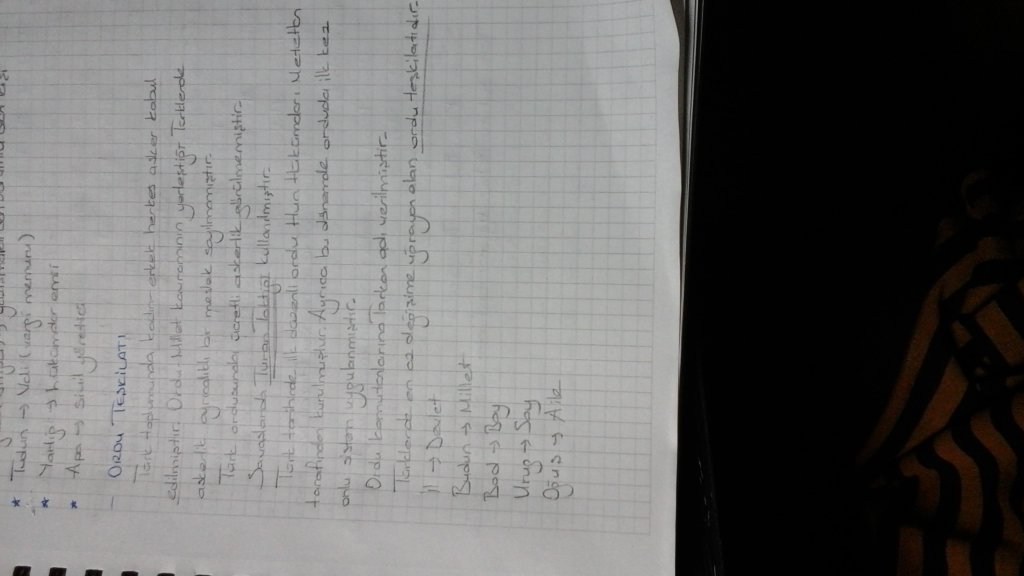 * Tudun → Vali (vergi memuru)
* Yarlıg → hükümdar emri
* Apa → sivil yönetici
- ORDU TEŞKİLATI
Türk toplumunda kadın-erkek herkes asker kabul
edilmiştir. Ordu-Millet kavramının yerleştiği Türklerde
askerlik ayrıcalıklı bir meslek sayılmamıştır.
Türk ordusunda ücretli askerlik görülmemiştir.
Savaşlarda Turan Taktiği kullanılmıştır.
Türk tarihinde ilk düzenli ordu Hun Hükümdarı Mete Han
tarafından kurulmuştur. Ayrıca bu dönemde orduda ilk kez
onlu sistem uygulanmıştır.
Ordu komutanlarına Tarkan adı verilmiştir.
Türklerde en az değişime uğrayan alan ordu teşkilatıdır.
İl → Devlet
Budun → Millet
Bod → Boy
Urug → Soy
Oğuş → Aile